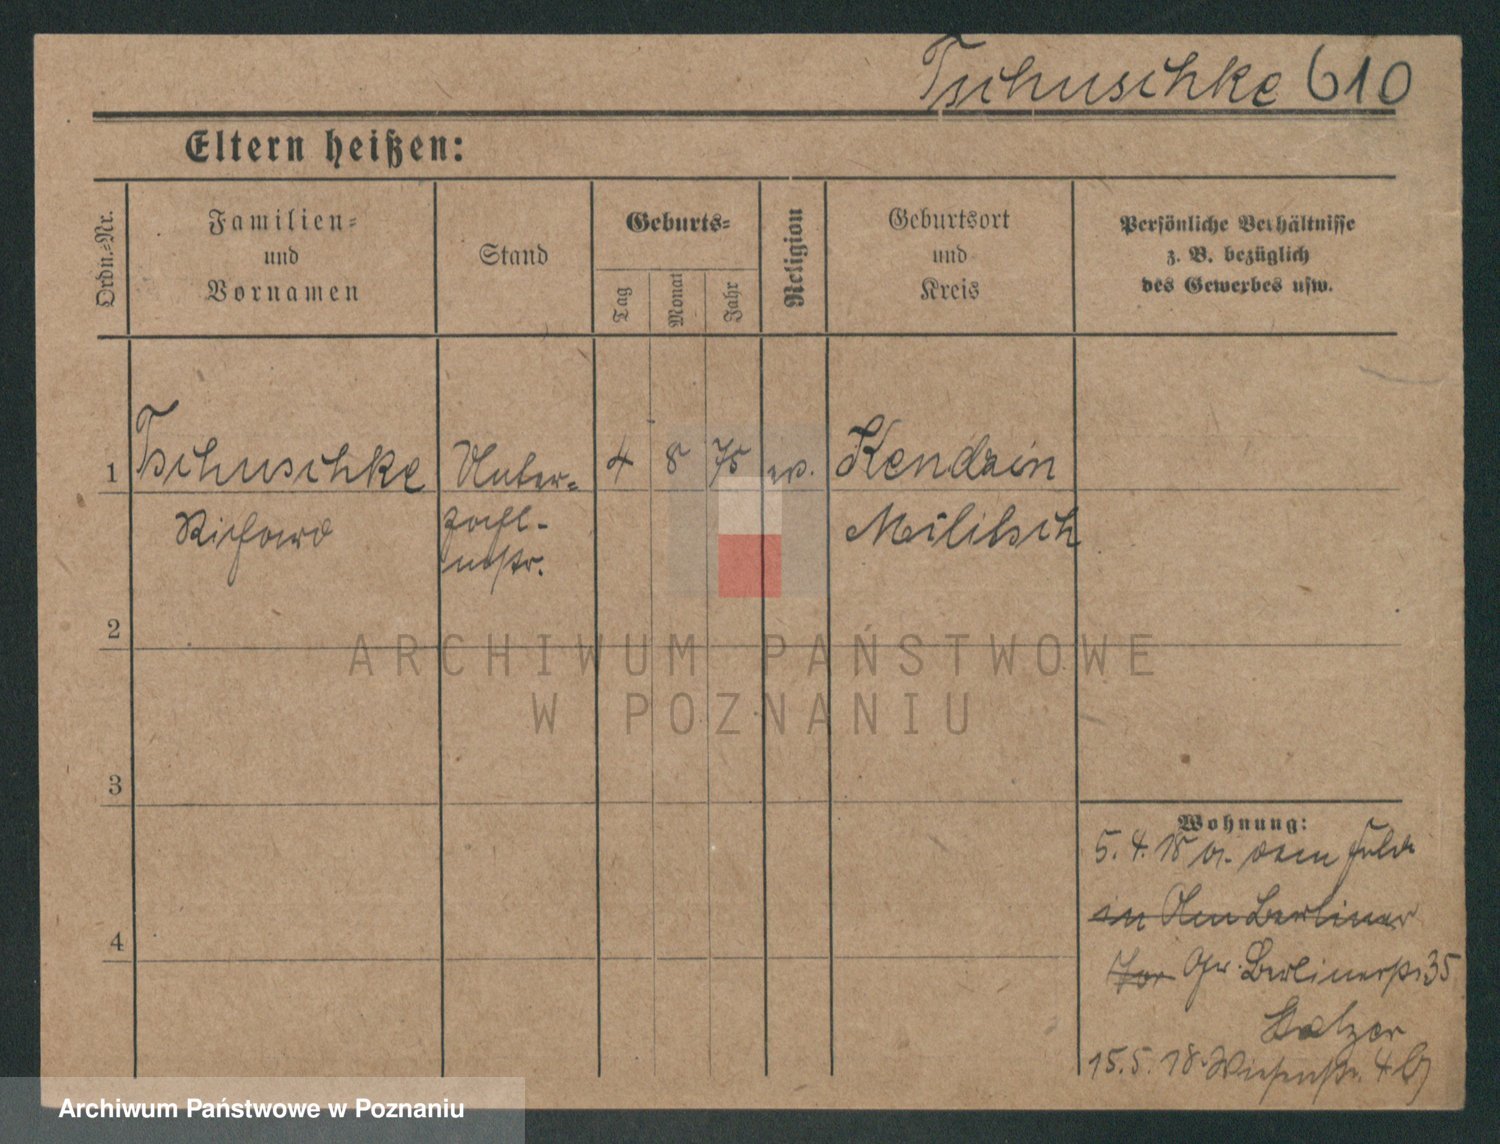 Tschuschke 610
Eltern heißen:
Ordn.-Nr.
Familien-
und
Vornamen
Stand
Geburts-
Tag
Monat
Jahr
Religion
Geburtsort
und
Kreis
Persönliche Verhältnisse
z. B. bezüglich
des Gewerbes usw.
1 Tschuschke Unter- 4 8 75 ev. Kendzin
Richard zahl- Militsch
mstr.
2
ARCHIWUM PAŃSTWOWE
W POZNANIU
3
Wohnung:
5. 4. 18 a. dem Felde
in Am Berliner
Tor Gr. Berlinerstr. 35
4
15. 5. 18 Wiesenstr. 4
Archiwum Państwowe w Poznaniu